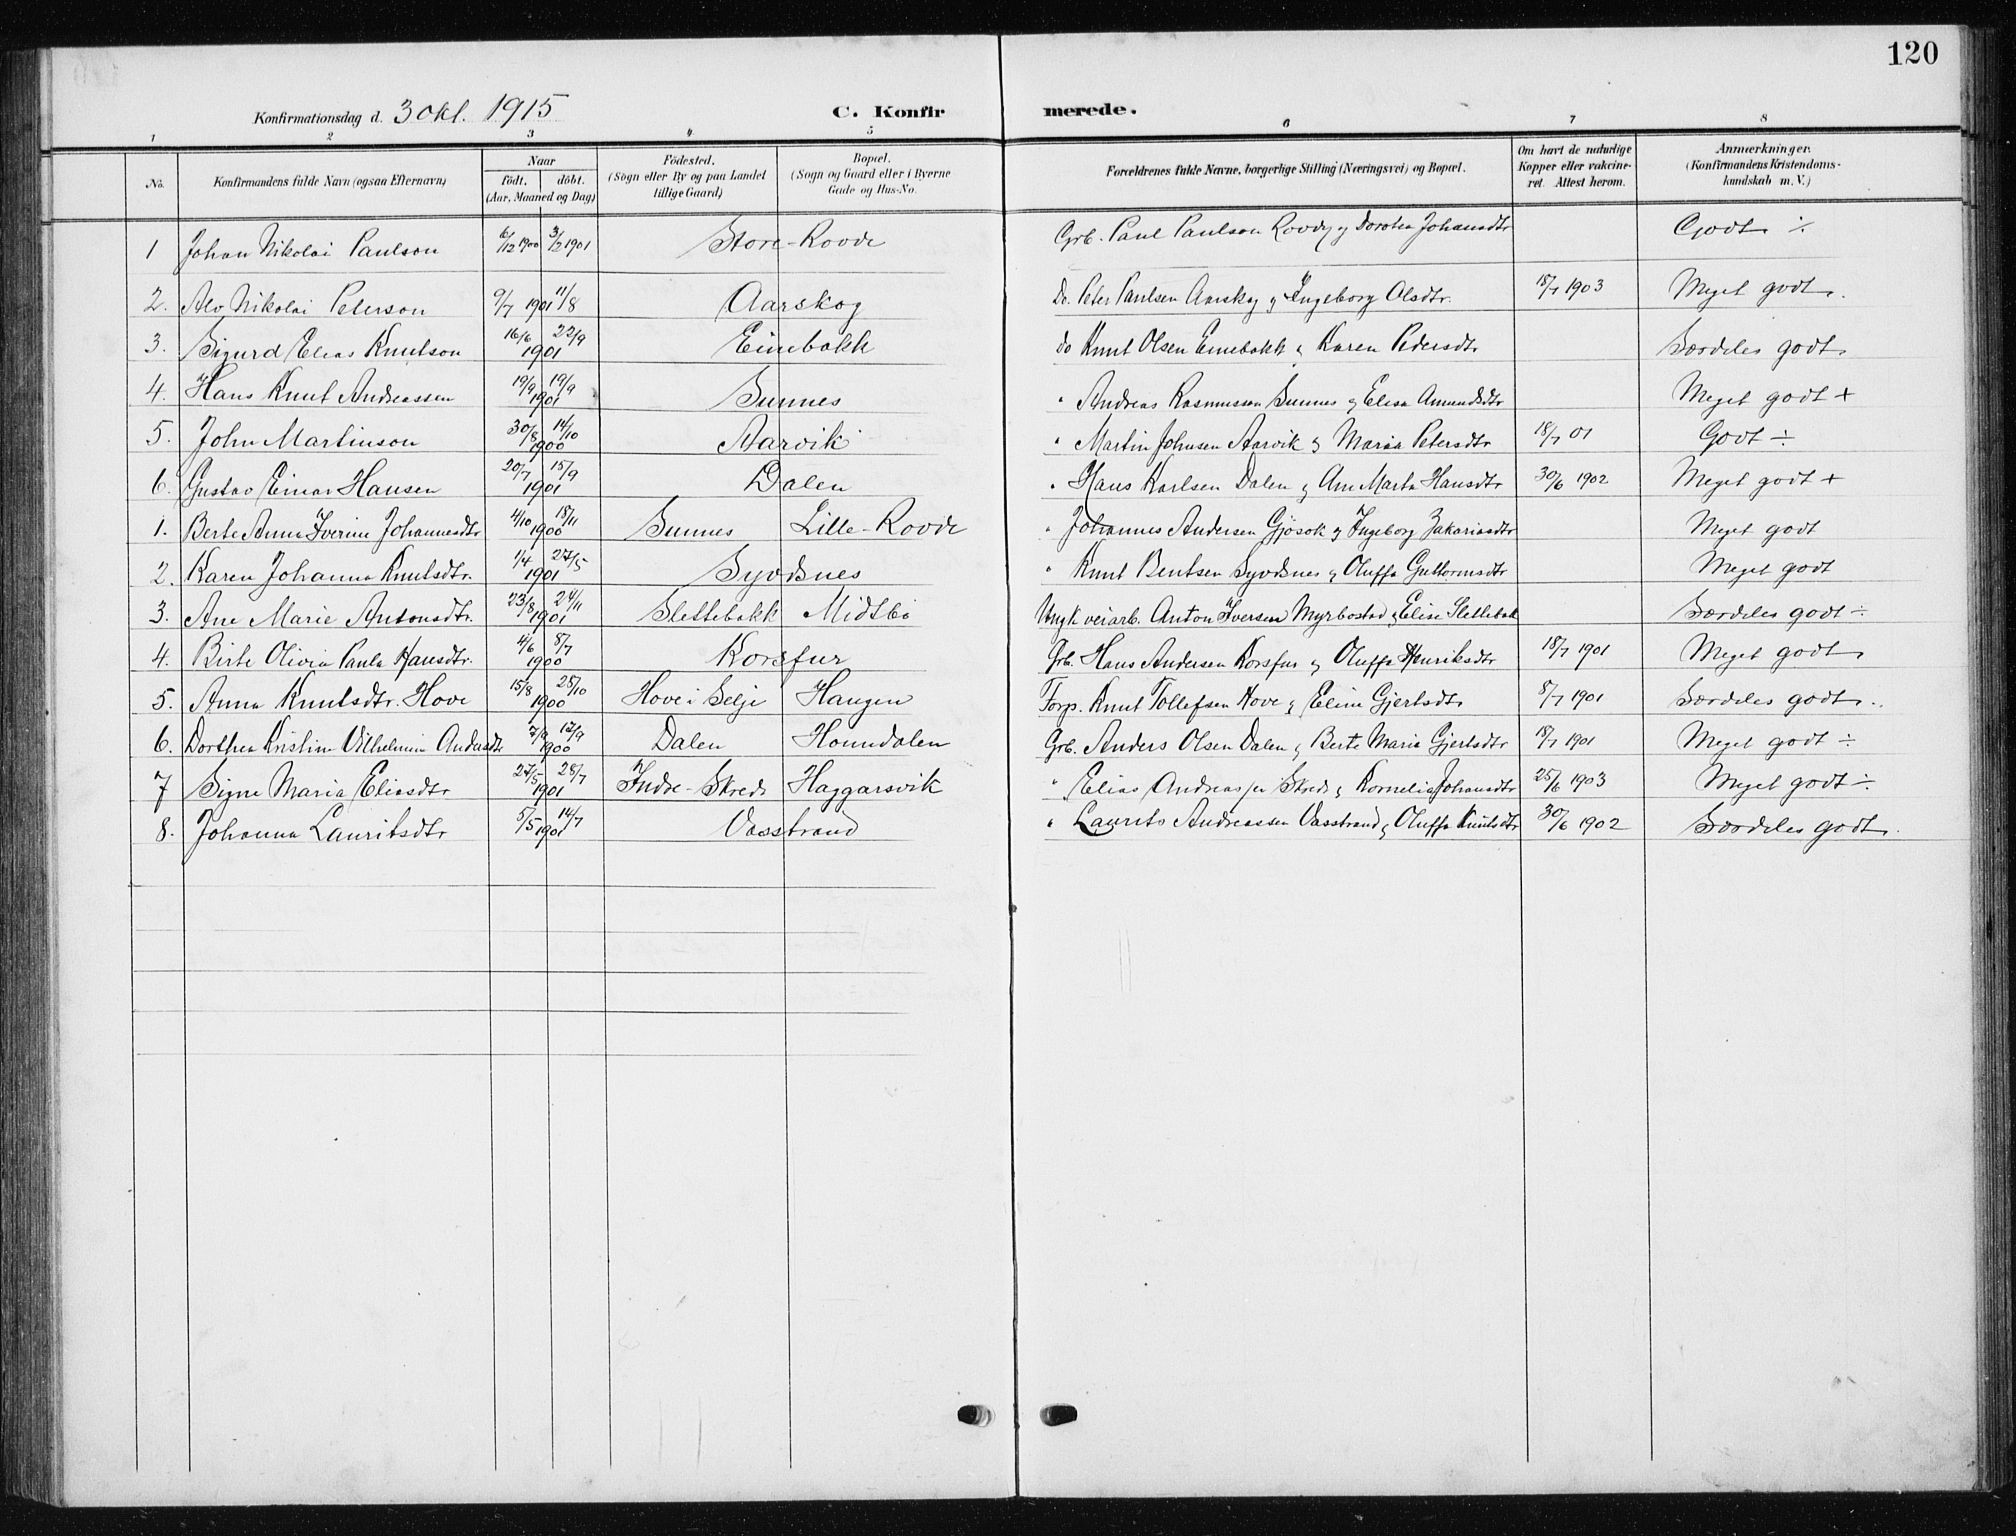 120
Konfirmationsdag d. 3 Okt. 1915 C. Konfirmerede.
1 2 3 4 5 6 7 8
No. Konfirmandens fulde Navn (ogsaa Efternavn) Naar født. døbt. (Aar, Maaned og Dag) Fødested. (Sogn eller By og paa Landet tillige Gaard) Bopæl. (Sogn og Gaard eller i Byerne Gade og Hus-No. Forældrenes fulde Navne, borgerlige Stilling (Næringsvei) og Bopæl. Om havt de naturlige Kopper eller vakcineret. Attest herom. Anmærkninger. (Konfirmandens Kristendomskundskab m. V.)
1 Johan Nikolai Paulson 6/12 1900 3/2 1901 Store-Rovde Grb. Paul Paulson Rovde og Dorotea Johansdtr Godt ÷
2. Alv Nikolai Peterson 9/7 1901 11/8 Aarskog Do. Peter Paulsen Aarskog og Ingeborg Olsdtr. 18/7 1903 Meget godt.
3. Sigurd Elias Knutson 16/6 1901 22/9 Einebakk do Knut Olsen Einebakk & Karen Pedersdtr Særdeles godt.
4. Hans Knut Andreassen 19/9 1901 19/9 Sunnes " Andreas Rasmussen Sunnes og Elisa Amundsdtr Meget godt +
5. John Martinson 30/8 1900 14/10 Aarvik " Martin Johnsen Aarvik og Maria Petersdtr 18/7 01 Godt ÷
6. Gustav Einar Hansen 20/7 1901 15/9 Dalen " Hans Karlsen Dalen & Ane Marta Hansdtr 30/6 1902 Meget godt +
1. Berte Anna Iverine Johannesdtr 4/10 1900 18/11 Sunnes Lille-Rovde " Johannes Andersen Gjøsok og Ingeborg Zakariasdtr Meget godt
2. Karen Johanna Knutsdtr. 1/4 1901 27/5 Syvdsnes " Knut Bentsen Syvdsnes & Oluffa Guttormsdtr Meget godt
3. Ane Marie Antonsdtr. 23/8 1901 24/11 Slettebakk Midtbø Ungk veiarb. Anton Iversen Myrbostad & Elise Slettebak Særdeles godt ÷
4. Birte Olivia Paula Hansdtr. 4/6 1900 8/7 Korsfur Grb. Hans Andersen Korsfur og Oluffa Henriksdtr 18/7 1901 Meget godt.
5. Anna Knutsdtr. Hove 15/8 1900 28/10 Hove i Selje Haugen Forp. Knut Tollefsen Hove & Eline Gjertsdtr 8/7 1901 Særdeles godt.
6. Dorthea Kristine Vilhelmine Andersdtr 7/9 1900 12/9 Dalen Homdalen Grb. Anders Olsen Dalen & Berte Maria Gjertsdtr 18/7 1901 Meget godt ÷
7 Signe Maria Eliasdtr 27/5 1901 28/7 Indre-Skreds Haggarsvik " Elias Andreassen Skreds & Kornelia Johansdtr 25/6 1903 Meget godt ÷
8. Johanna Lauritsdtr 5/5 1901 14/7 Vasstrand " Laurits Andreassen Vasstrand & Oluffa Knutsdtr 30/6 1902 Særdeles godt.